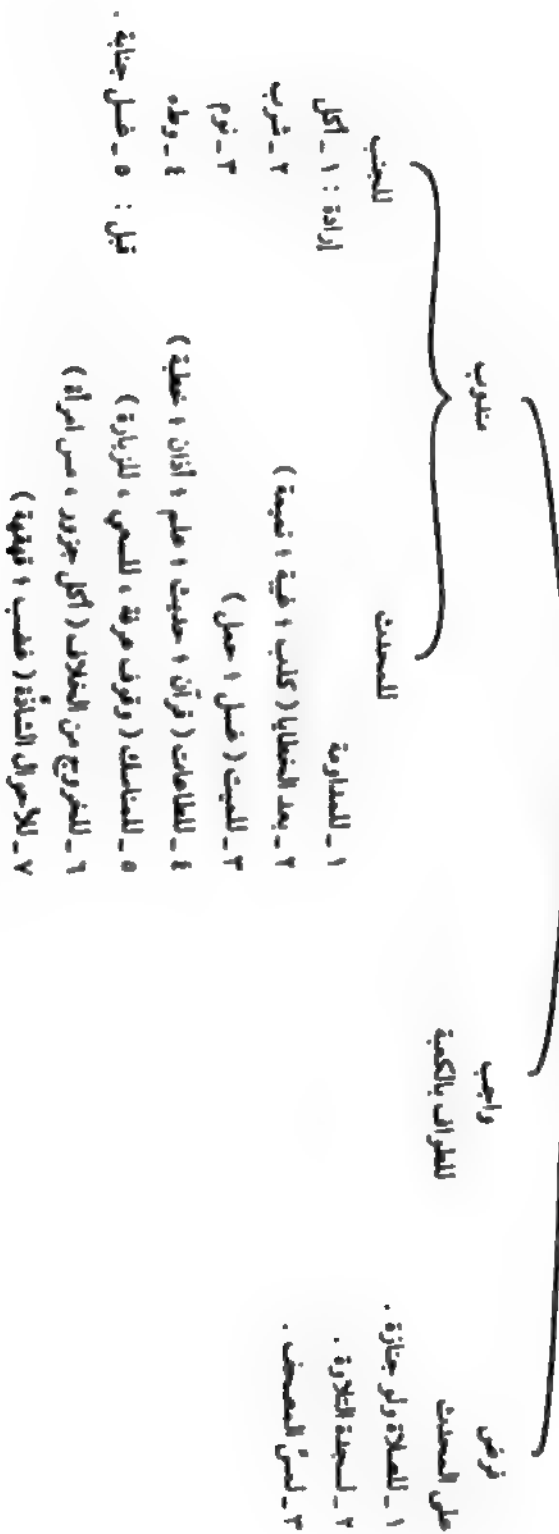 فرض
على المحدث
١ ـ للصلاة ولو جنازة .
٢ ـ لسجدة التلاوة .
٣ ـ لمس المصحف .
واجب
للطواف بالكعبة
مندوب
للمحدث
١ ـ للمداومة
٢ ـ بعد الخطايا ( كذب ، غيبة ، نميمة )
٣ ـ للميت ( غسل ، حمل )
٤ ـ للطاعات ( قرآن ، حديث ، علم ، أذان ، خطبة )
٥ ـ للمناسك ( وقوف عرفة ، للسعي ، للزيارة )
٦ ـ للخروج من الخلاف ( أكل جزور ، مس امرأة )
٧ ـ للأحوال الشاقة ( غضب ، قهقهة )
للجنب
إرادة : ١ ـ أكل
٢ ـ شرب
٣ ـ نوم
٤ ـ وطء
قبل : ٥ ـ غسل جنابة .